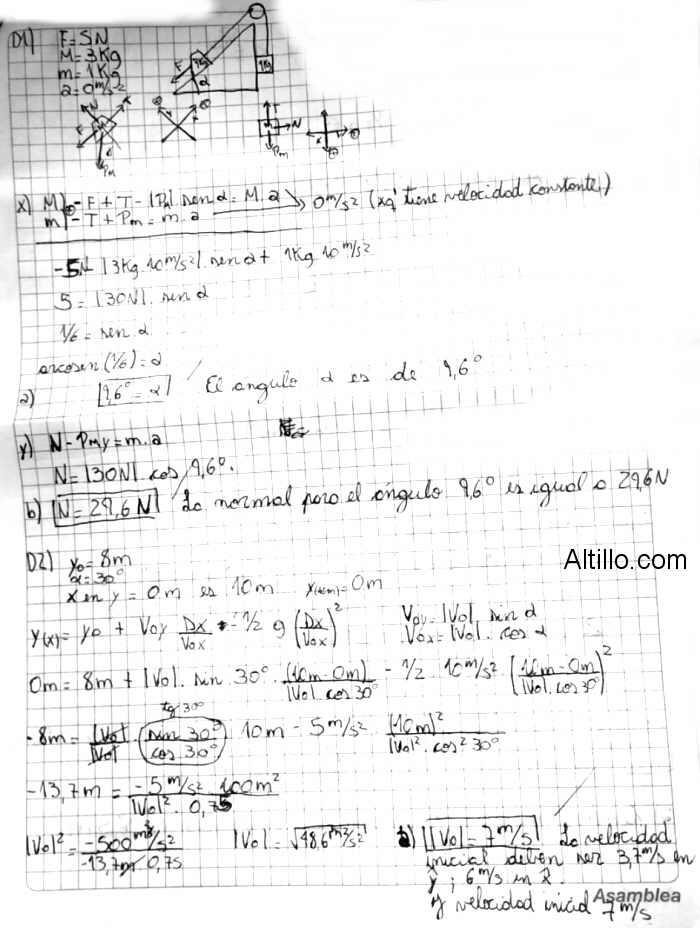 D1) F=5N
M=3Kg
m=1Kg
a=0m/s²
F
α
N
F
Pm
T
N
m
Pm
x) M) -F+T-|Pm|.sen α = M.a → 0m/s² (xq' tiene velocidad constante)
m) -T+Pm = m.a
-5N |3Kg.10m/s²|.sen α + 1Kg 10m/s²
5 = |30N|.sen α
1/6 = sen α
arcosen(1/6)=α
a) 9,6° = α / El angulo α es de 9,6°
y) N-Pmy = m.a
N=|30N| cos 9,6°.
b) N=29,6N / La normal para el ángulo 9,6° es igual a 29,6N
Altillo.com
D2) yo = 8m
α = 30°
x en y = 0m es 10m y(10m) = 0m
y(x) = yo + Voy Dx/Vox - 1/2 g (Dx/Vox)²
Voy = |Vo|. sin α
Vox = |Vo|. cos α
0m = 8m + |Vo|. sin 30°. (10m-0m)/|Vo|.cos 30° - 1/2 10m/s² ((10m-0m)/|Vo|.cos 30°)²
tg 30°
-8m = |Vo|/|Vo| . sin 30°/cos 30° . 10m - 5m/s² (10m)²/|Vo|².cos² 30°
-13,7m = -5m/s² 100m²/|Vo|². 0,75
|Vo|² = -500m³/s²/-13,7m 0,75 |Vo| = √48,6m²/s² |Vo| = 7m/s La velocidad
inicial deben ser 3,7m/s en
ŷ ; 6m/s en x̂.
y velocidad inicial 7m/s
Asamblea